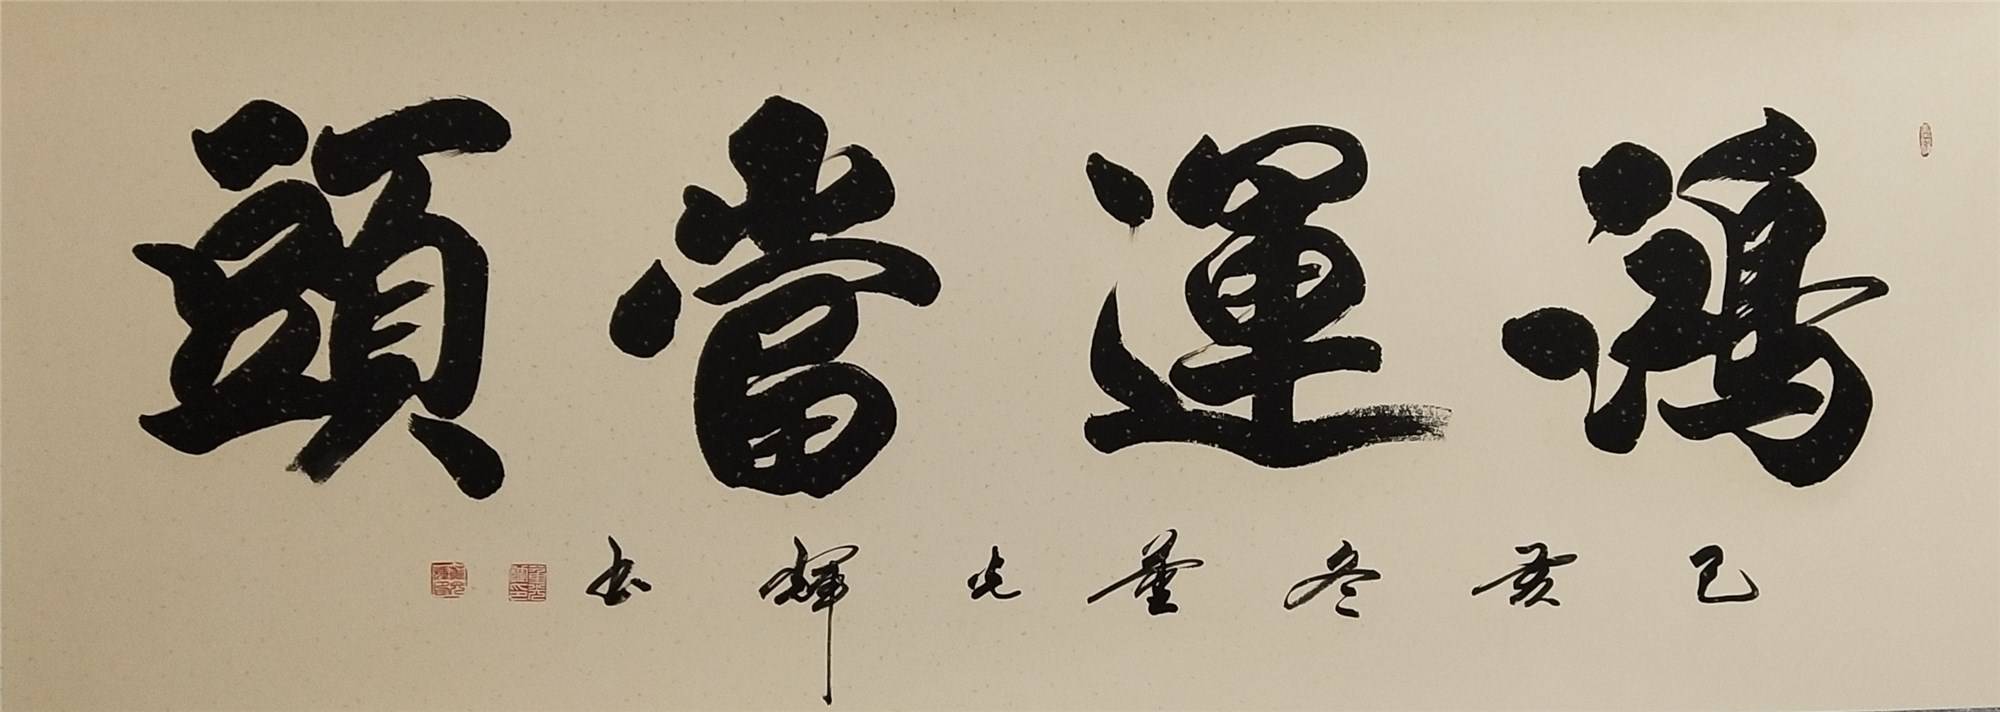 鴻運當頭
己亥冬董光輝书